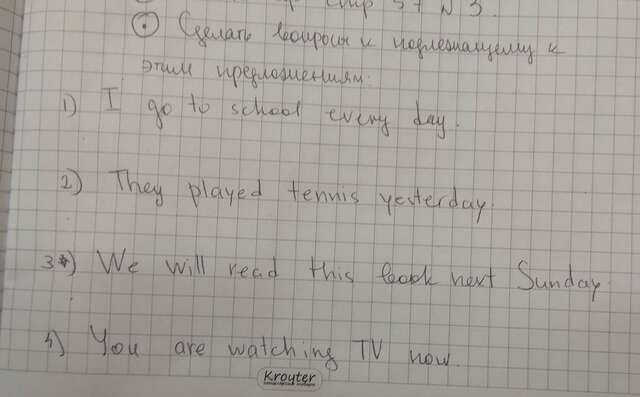 стр 37 N 3.
Сделать вопросы к подлежащему к
этим предложениям:
1) I go to school every day.
2) They played tennis yesterday.
3) We will read this book next Sunday
4) You are watching TV now.
Krouter